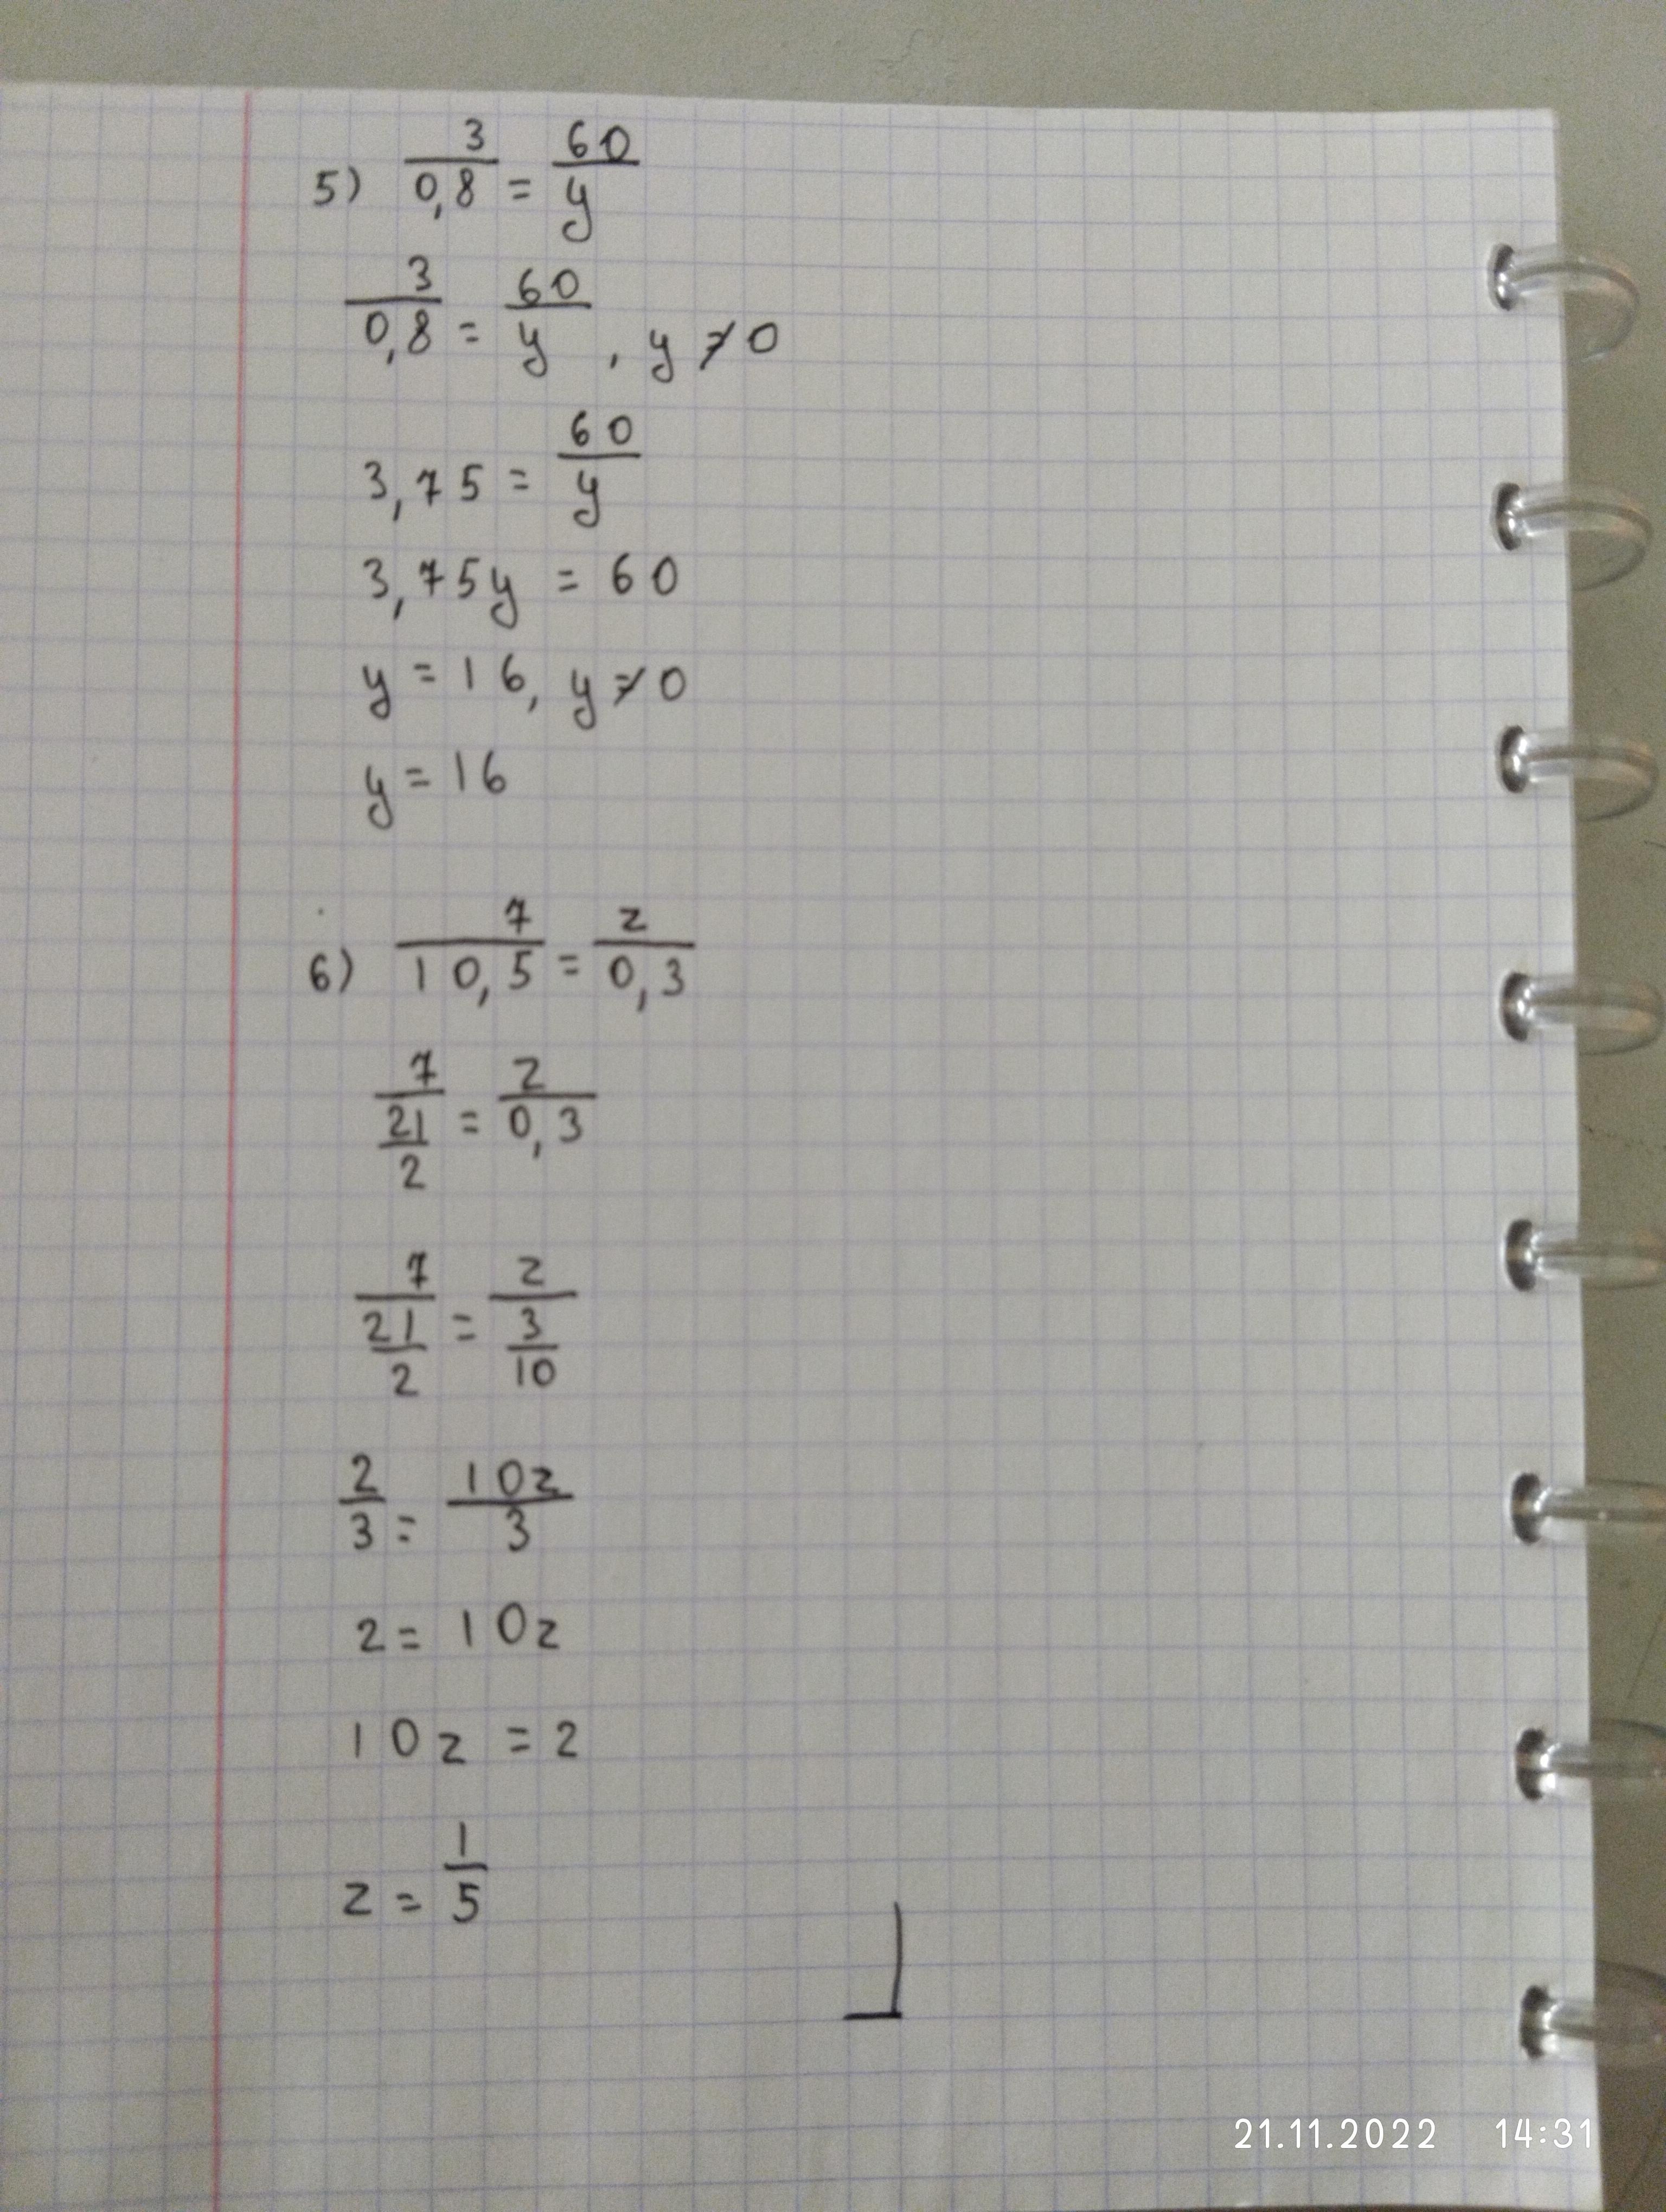 5) 3/0,8 = 60/y
3/0,8 = 60/y , y ≠ 0
3,75 = 60/y
3,75y = 60
y = 16, y ≠ 0
y = 16
6) 7/10,5 = z/0,3
7/(21/2) = z/0,3
7/(21/2) = z/(3/10)
2/3 = 10z/3
2 = 10z
10z = 2
z = 1/5
21.11.2022 14:31